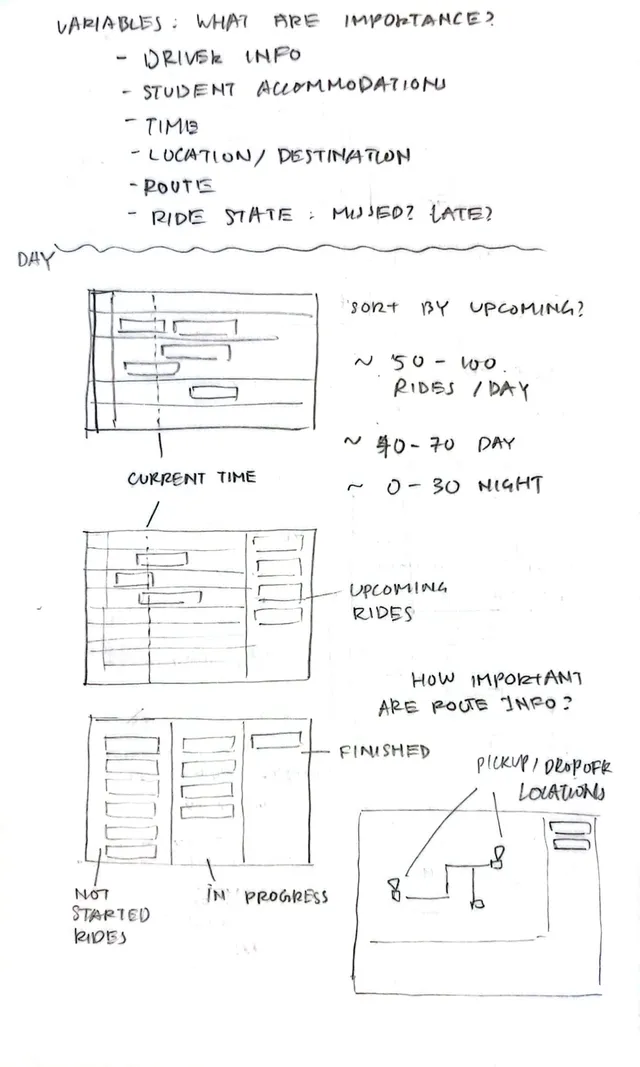 VARIABLES: WHAT ARE IMPORTANCE?
- DRIVER INFO
- STUDENT ACCOMMODATIONS
- TIME
- LOCATION/ DESTINATION
- ROUTE
- RIDE STATE : MISSED? LATE?
DAY
SORT BY UPCOMING?
~ 50 - 100
RIDES / DAY
~ 40 - 70 DAY
~ 0 - 30 NIGHT
CURRENT TIME
UPCOMING
RIDES
HOW IMPORTANT
ARE ROUTE INFO?
FINISHED
PICKUP/ DROPOFF
LOCATIONS
NOT
STARTED
RIDES
IN PROGRESS